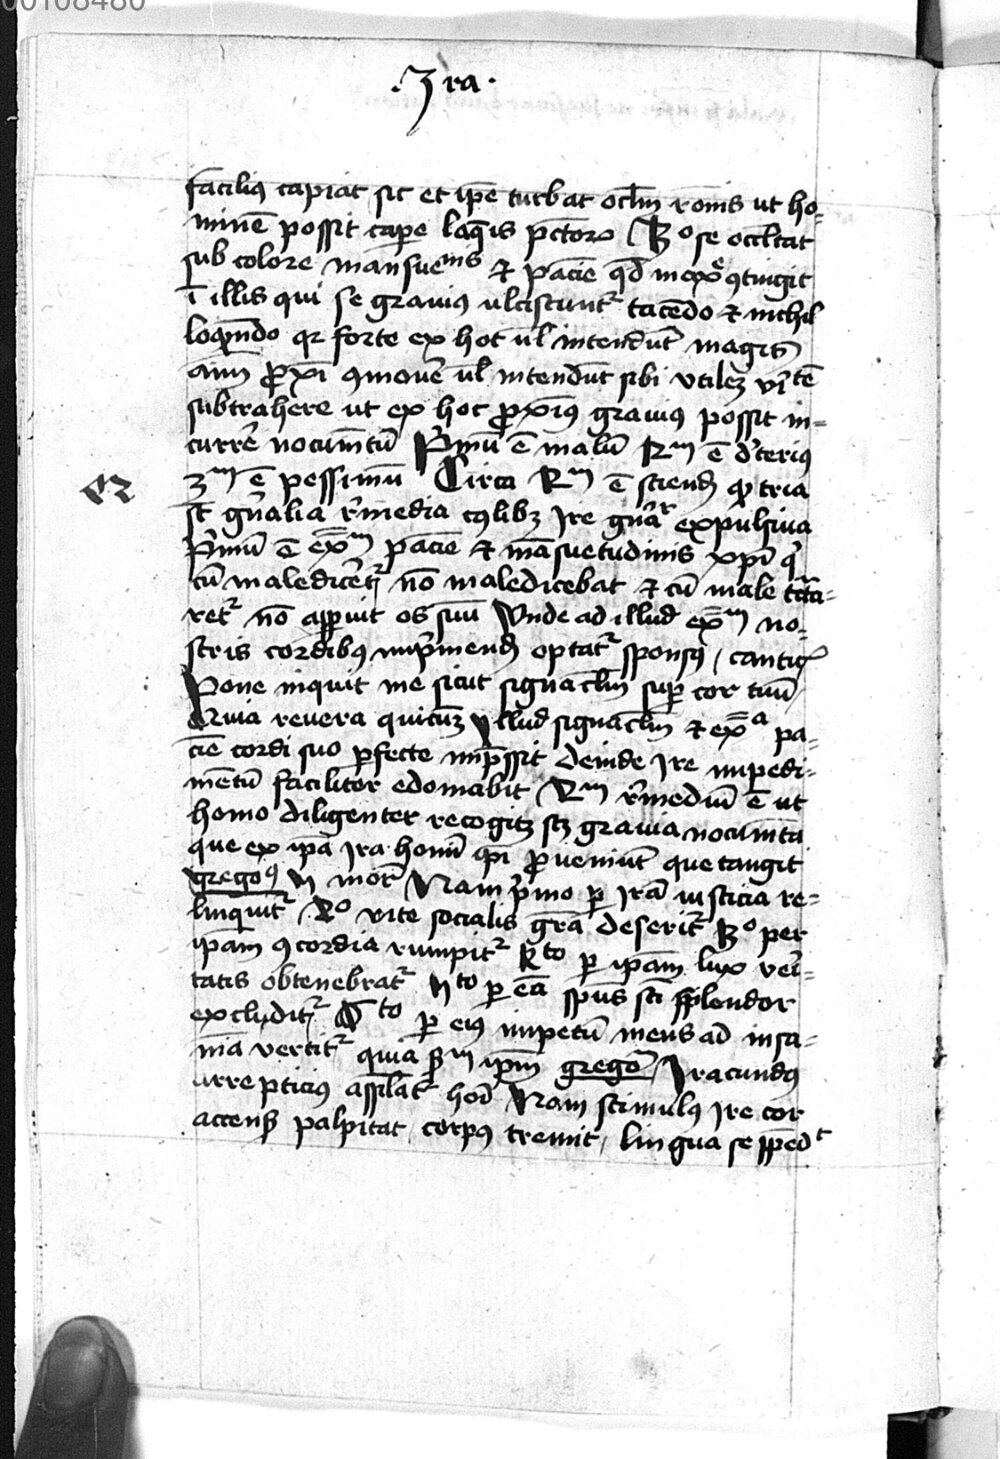 00108480
.Ira.
facilius capiat sic et ip̄e turbat oc̄lm rōnis ut ho-
minē possit cap̄e laq̄is p̄ctor̄ 3º se occultat
sub colore mansue^nis & pacīe qd̄
ī illis qui se gravius ulciscunt^r tacēdo & nichil
loq̄ndo qr forte ex hoc ul̄ intendūt magis
aīm p̄xi ꝯmovē ul̄ intendūt sibi utilē
subtrahere ut ex hoc p̄xīus gravius possit in-
currē nocumtū P̄mū ē malū 2^m ē d̓terius
3^m ē pessimū Circa 2^m ē sciend̄ ꝙ tria
st̄ gn̄alia r̄media cꝯlibꝫ Ire gn̄ar^r expulsiva
P̄mū ē ex̄^m pacīe & māsuetudinis xp̄i q̄
cū maledicēt^r nō maledicebat & cū male tr̄cta-
ret^r nō apperuit os suū Unde ad illud ex̄^m no-
stris cordibꝰ imp̄mend̄ optat^r sponsꝰ / cantic̄
Pone inquit me sicut signac̄lm sup̄ cor tuū
Quia revera quicūꝫ illud signac̄lm & ex̄^a pa-
cīe cordi suo p̄fecte imp̄ssit deinde Ire impedi-
mētū faciliter edomabit 2^m r̄mediū ē ut
homo diligenter recogitꝫ scꝫ gravia nocumta
que ex ip̄a Ira homī ip̄i p̄veniūt que tangit
grego^9 v mor̄ Nam p̄mo p̄ Irā iusticia re-
linquit^r 2º vite socialis gr̄a deserit^r 3º per
ip̄am ꝯcordia rumpit^r 4^to p̄ ip̄am lux veri-
tatis obtenebrat^r v^to p̄ eā sp̄us sc̄i sp̄lendor
excludit^r 6^to p̄ eiꝰ impetū mens ad insa-
nīa vertit^r quia s̄^m ip̄m grego^r Iracundꝰ
arrepticius assīlat^r Nam stimulꝰ Ire cor
accensꝫ palpitat / corpꝰ tremit / lingua se p̄ped^t